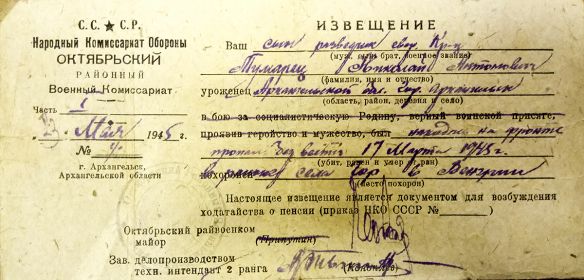 С. С. ★ С. Р.
Народный Комиссариат Обороны
ОКТЯБРЬСКИЙ
РАЙОННЫЙ
Военный Комиссариат
Часть 1
Мая 1945 г.
№
г. Архангельск,
Архангельской области
ИЗВЕЩЕНИЕ
Ваш сын разведчик
(муж, сын, брат, военное звание)
Николай Антонович
(фамилия, имя и отчество)
уроженец Архангельской обл. гор. Архангельск
(область, район, деревня и село)
в бою за социалистическую Родину, верный воинской присяге,
проявив геройство и мужество, был находясь на фронте
пропал без вести 17 марта 1945 г.
(убит, ранен и умер от ран)
похоро в районе села в Венгрии
(место похорон)
Настоящее извещение является документом для возбуждения
ходатайства о пенсии (приказ НКО СССР №)
Октябрьский райвоенком
майор (Припутин)
Зав. делопроизводством
техн. интендант 2 ранга